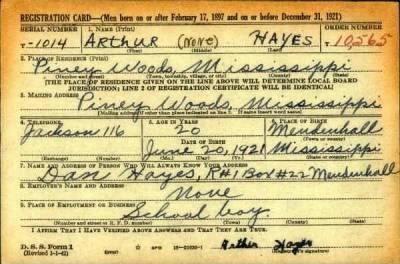 REGISTRATION CARD—(Men born on or after February 17, 1897 and on or before December 31, 1921)
SERIAL NUMBER 1. NAME (Print) ORDER NUMBER
T-1014 ARTHUR (NONE) HAYES 10,565
(First) (Middle) (Last)
2. PLACE OF RESIDENCE (Print)
Piney Woods, Mississippi
(Number and street) (Town, township, village, or city) (County) (State)
[THE PLACE OF RESIDENCE GIVEN ON THE LINE ABOVE WILL DETERMINE LOCAL BOARD
JURISDICTION; LINE 2 OF REGISTRATION CERTIFICATE WILL BE IDENTICAL]
3. MAILING ADDRESS
Piney Woods, Mississippi
[Mailing address if other than place indicated on line 2. If same insert word same]
4. TELEPHONE 5. AGE IN YEARS 6. PLACE OF BIRTH
Jackson 116 20 Mendenhall
DATE OF BIRTH (Town or county)
June 20, 1921 Mississippi
(Exchange) (Number) (Mo.) (Day) (Yr.) (State or country)
7. NAME AND ADDRESS OF PERSON WHO WILL ALWAYS KNOW YOUR ADDRESS
Dan Hayes, R#1 Box#22 Mendenhall
8. EMPLOYER'S NAME AND ADDRESS
None
9. PLACE OF EMPLOYMENT OR BUSINESS
School boy.
(Number and street or R. F. D. number) (Town) (County) (State)
I AFFIRM THAT I HAVE VERIFIED ABOVE ANSWERS AND THAT THEY ARE TRUE.
D. S. S. Form 1
(Revised 1-1-42) (over) Arthur Hayes